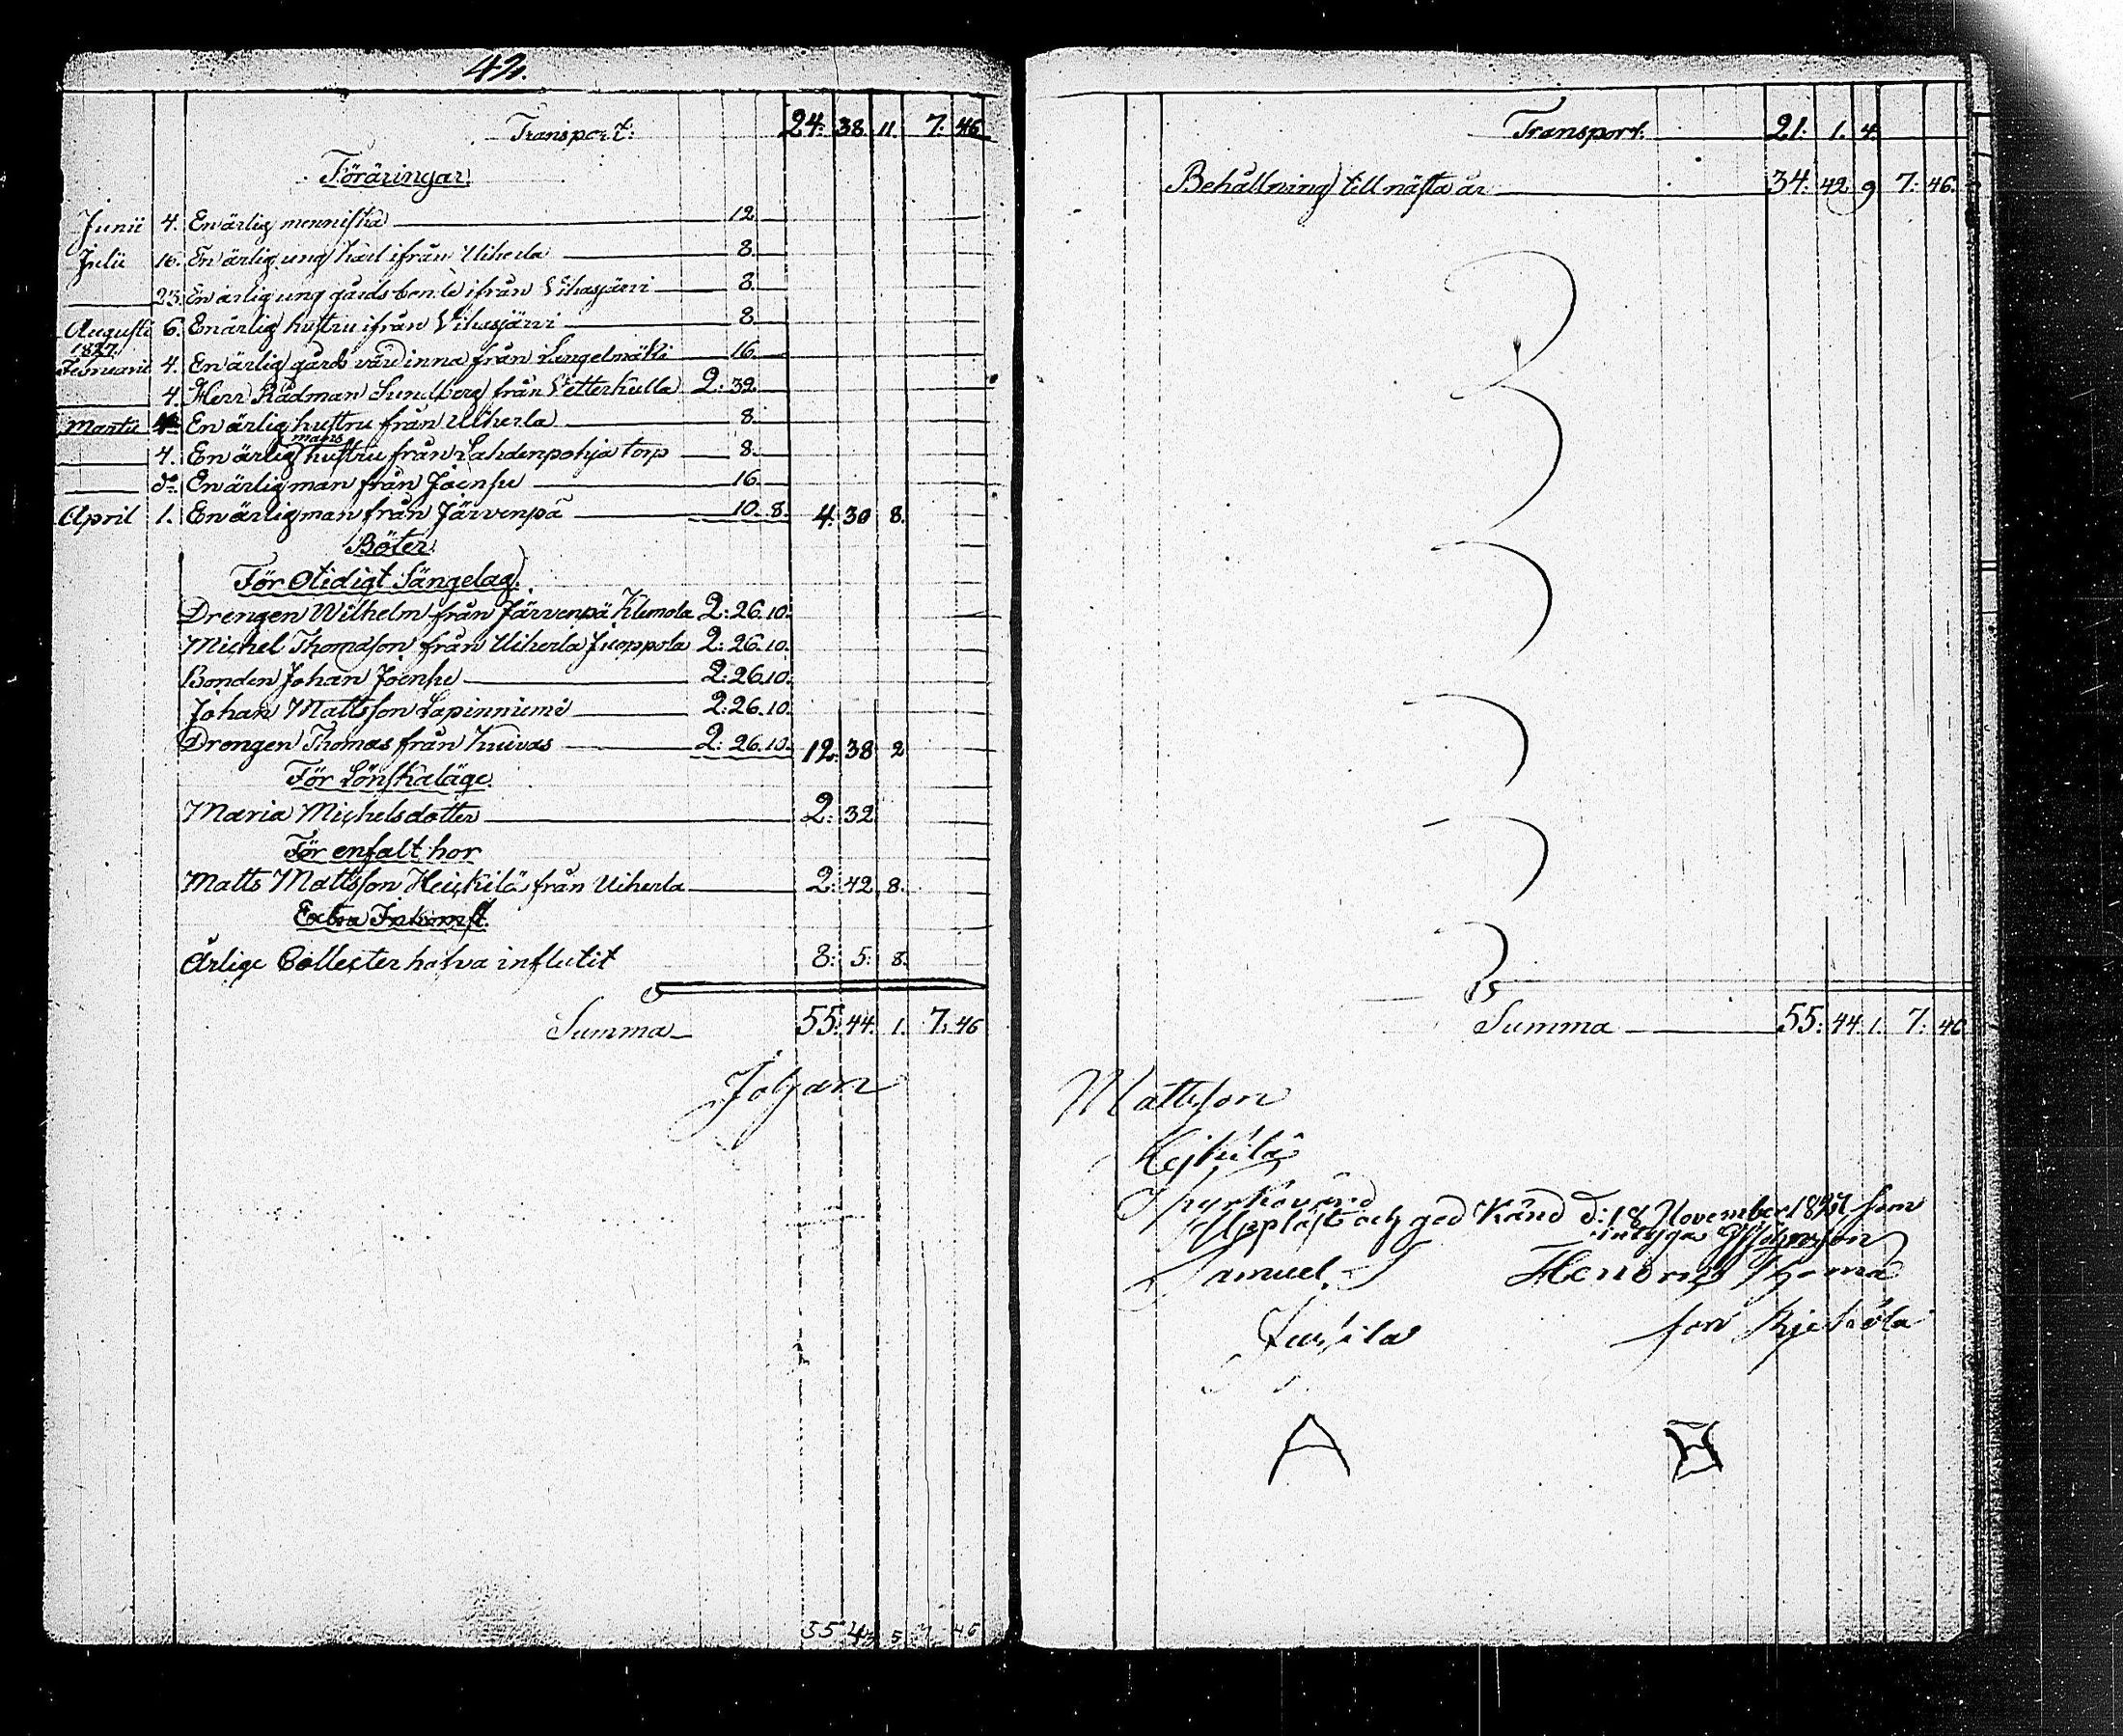 42.
Transport: 24. 38 11 7. 46
Föräringar
Junii 4. En ärlig menniska 12
Julii 16. En ärlig ung karl ifrån Uiherla 8.
23. En ärlig ung gårds bonde ifrån Vihasjärvi 8.
Augusti 6. En ärlig hustru ifrån Vihasjärvi 8.
1827.
Februarii 4. En ärlig gårds värdinna från Längelmäki 16.
4. Herr Rådman Sundberg från Vetterkulla 2: 32
Martii En ärlig hustru från Uiherla 8.
mans
4. En ärlig hustru från Lahdenpohja torp 8.
do En ärlig man från Joenpe 16.
April 1. En ärlig man från Järvenpä 10. 8. 4. 30 8.
Böter
För Otidigt Sängelag.
Drengen Wilhelm från Järvenpä Klemola 2: 26. 10.
Michel Thomasson från Uiherla Juoppola 2: 26. 10.
Bonden Johan Joenpe 2: 26. 10.
Johan Mattsson Lapinniemi 2: 26. 10.
Drengen Thomas från Kuivas 2: 26. 10. 12. 38 2
För Lönskaläge.
Maria Michelsdotter 2: 32
För enfalt hor
Matts Mattsson Heickilä från Uiherla 2: 42 8.
Extra Inkomst.
Ärlige Collecter hafva influtit 8: 5: 8.
Summa 55: 44. 1. 7. 46
Johan
55 44 5 7 46
Transport. 21. 1. 4.
Behållning till nästa år 34. 42 9 7. 46.
Summa 55: 44. 1. 7: 46
Mattsson
Hejkilä
Kyrkovärd
Uppläst och god känd d: 18 November 1827 som
intyga
Samuel Hendrich Thoma
son
A